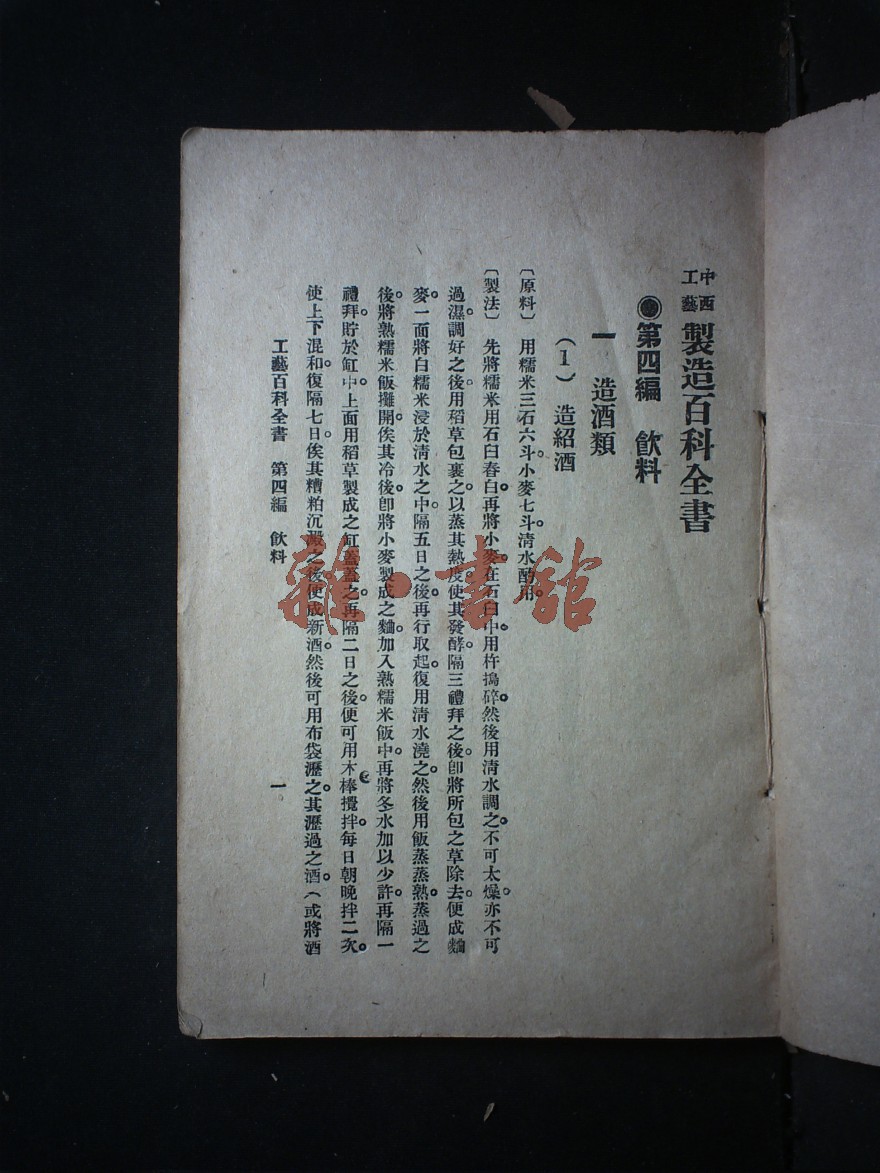 中西工藝 製造百科全書
第四編 飲料
一 造酒類
(1) 造紹酒
〔原料〕 用糯米三石六斗。小麥七斗。清水酌用。
〔製法〕 先將糯米用石臼舂白。再將小麥。在石臼中。用杵搗碎。然後用清水調之。不可太燥。亦不可
過濕。調好之後。用稻草包裹之。以蒸其熱度。使其發酵。隔三禮拜之後。卽將所包之草除去。便成麯
麥。一面將白糯米浸於清水之中。隔五日之後。再行取起。復用清水澆之。然後用飯蒸蒸熟。蒸過之
後。將熟糯米飯攤開。俟其冷後。卽將小麥製成之麯。加入熟糯米飯中。再將冬水加以少許。再隔一
禮拜。貯於缸中。上面用稻草製成之缸蓋蓋之。再隔二日之後。便可用木棒攪拌。每日朝晚拌二次。
使上下混和。復隔七日。俟其糟粕沉澱之後。便成新酒。然後可用布袋瀝之。其瀝過之酒。（或將酒
工藝百科全書 第四編 飲料 一
雜·書館